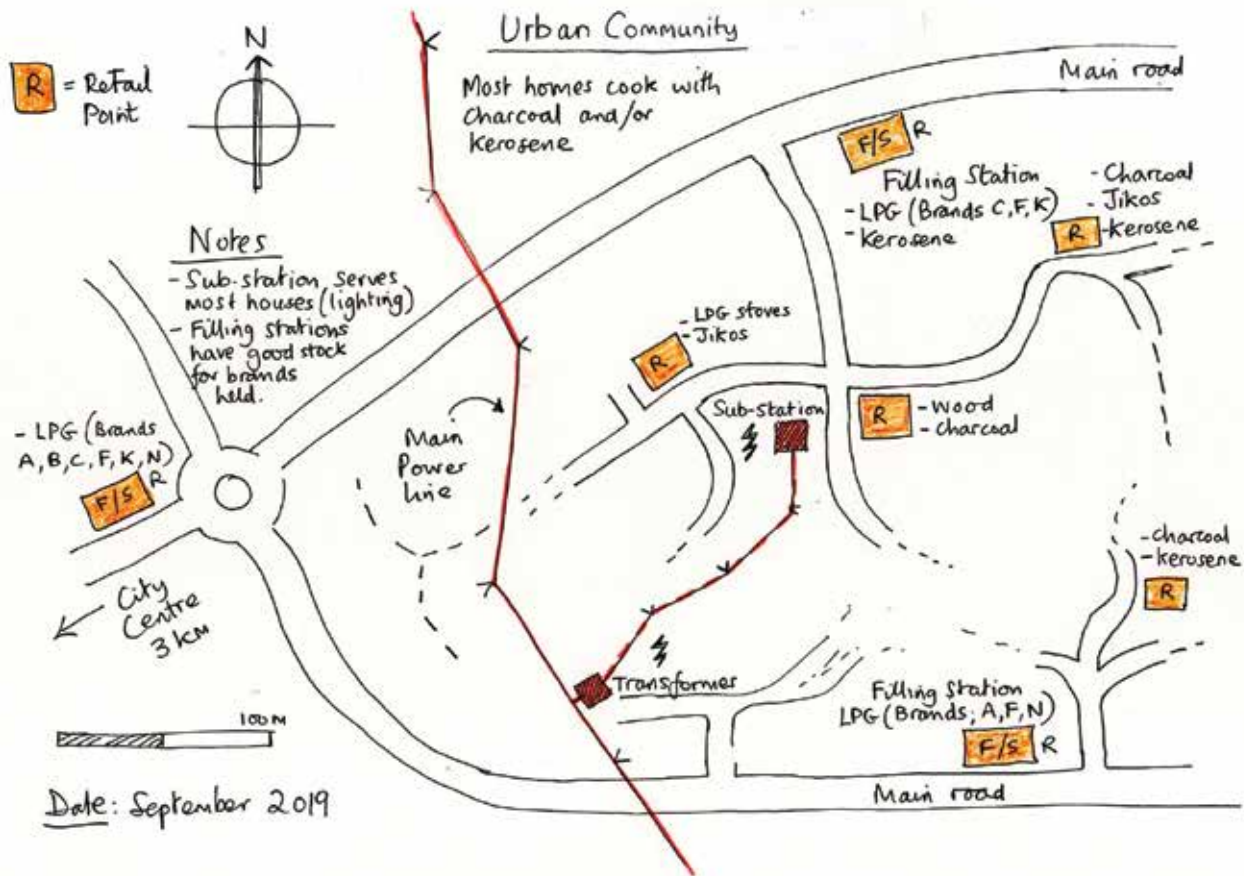 Urban Community
Most homes cook with
Charcoal and/or
Kerosene
N
R = Retail
Point
Main road
F/S R
Filling Station
- LPG (Brands C, F, K)
- Kerosene
- Charcoal
- Jikos
- Kerosene
R
Notes
- Sub-station serves
most houses (lighting)
- Filling stations
have good stock
for brands
held.
- LPG stoves
- Jikos
R
Sub-station
R
- Wood
- charcoal
- LPG (Brands
A, B, C, F, K, N)
F/S R
Main
Power
line
City
Centre
3 KM
- Charcoal
- Kerosene
R
Transformer
Filling Station
LPG (Brands; A, F, N)
F/S R
100M
Main road
Date: September 2019